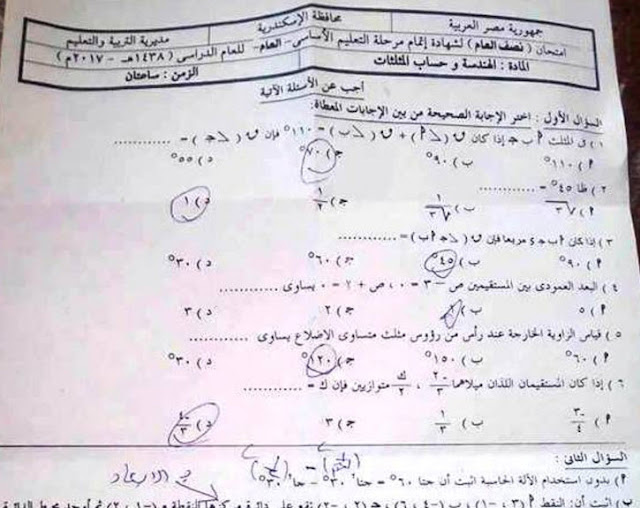 جمهورية مصر العربية
محافظة الإسكندرية
مديرية التربية والتعليم
امتحان ( نصف العام ) لشهادة إتمام مرحلة التعليم الأساسى – العام – للعام الدراسى ( ١٤٣٨هـ - ٢٠١٧م )
المادة : الهندسة و حساب المثلثات
الزمن : ساعتان
أجب عن الأسئلة الآتية
السؤال الأول : اختر الإجابة الصحيحة من بين الإجابات المعطاة:
١ ) فى المثلث م ب جـ إذا كان ق ( ⦣ م ) + ق ( ⦣ ب ) = ١١٠° فإن ق ( ⦣ جـ ) = ............
م ) ١١٠° ب ) ٩٠° جـ ) ٧٠° د ) ٥٥°
٢ ) ظا ٤٥° = ............
م ) √٣ ب ) ١/√٣ جـ ) ١/٢ د ) ١
٣ ) إذا كان م ب جـ ء مربعا فإن ق ( ⦣ جـ م ب ) = ............
م ) ٩٠° ب ) ٤٥° جـ ) ٦٠° د ) ٣٠°
٤ ) البعد العمودى بين المستقيمين ص – ٣ = ٠ ، ص + ٢ = ٠ يساوى ............
م ) ٥ ب ) جـ ) ٢ د ) ٣
٥ ) قياس الزاوية الخارجة عند رأس من رؤوس مثلث متساوى الاضلاع يساوى ............
م ) ٦٠° ب ) ١٥٠° جـ ) ١٢٠° د ) ٣٠°
٦ ) إذا كان المستقيمان اللذان ميلاهما -٢/٣ ، ك/٢ متوازيين فإن ك = ............
م ) -٣/٤ ب ) ١/٣ جـ ) ٣ د ) -٤/٣
السؤال الثانى :
م ) بدون استخدام الآلة الحاسبة اثبت أن جتا ٦٠° = جتا٢ ٣٠° – جا٢ ٣٠°
ب ) اثبت أن: النقط م ( ٣ ، -١ ) ، ب ( -٤ ، ٦ ) ، جـ ( ٢ ، -٢ ) تقع على دائرة مركزها النقطة ( -١ ، ٢ )